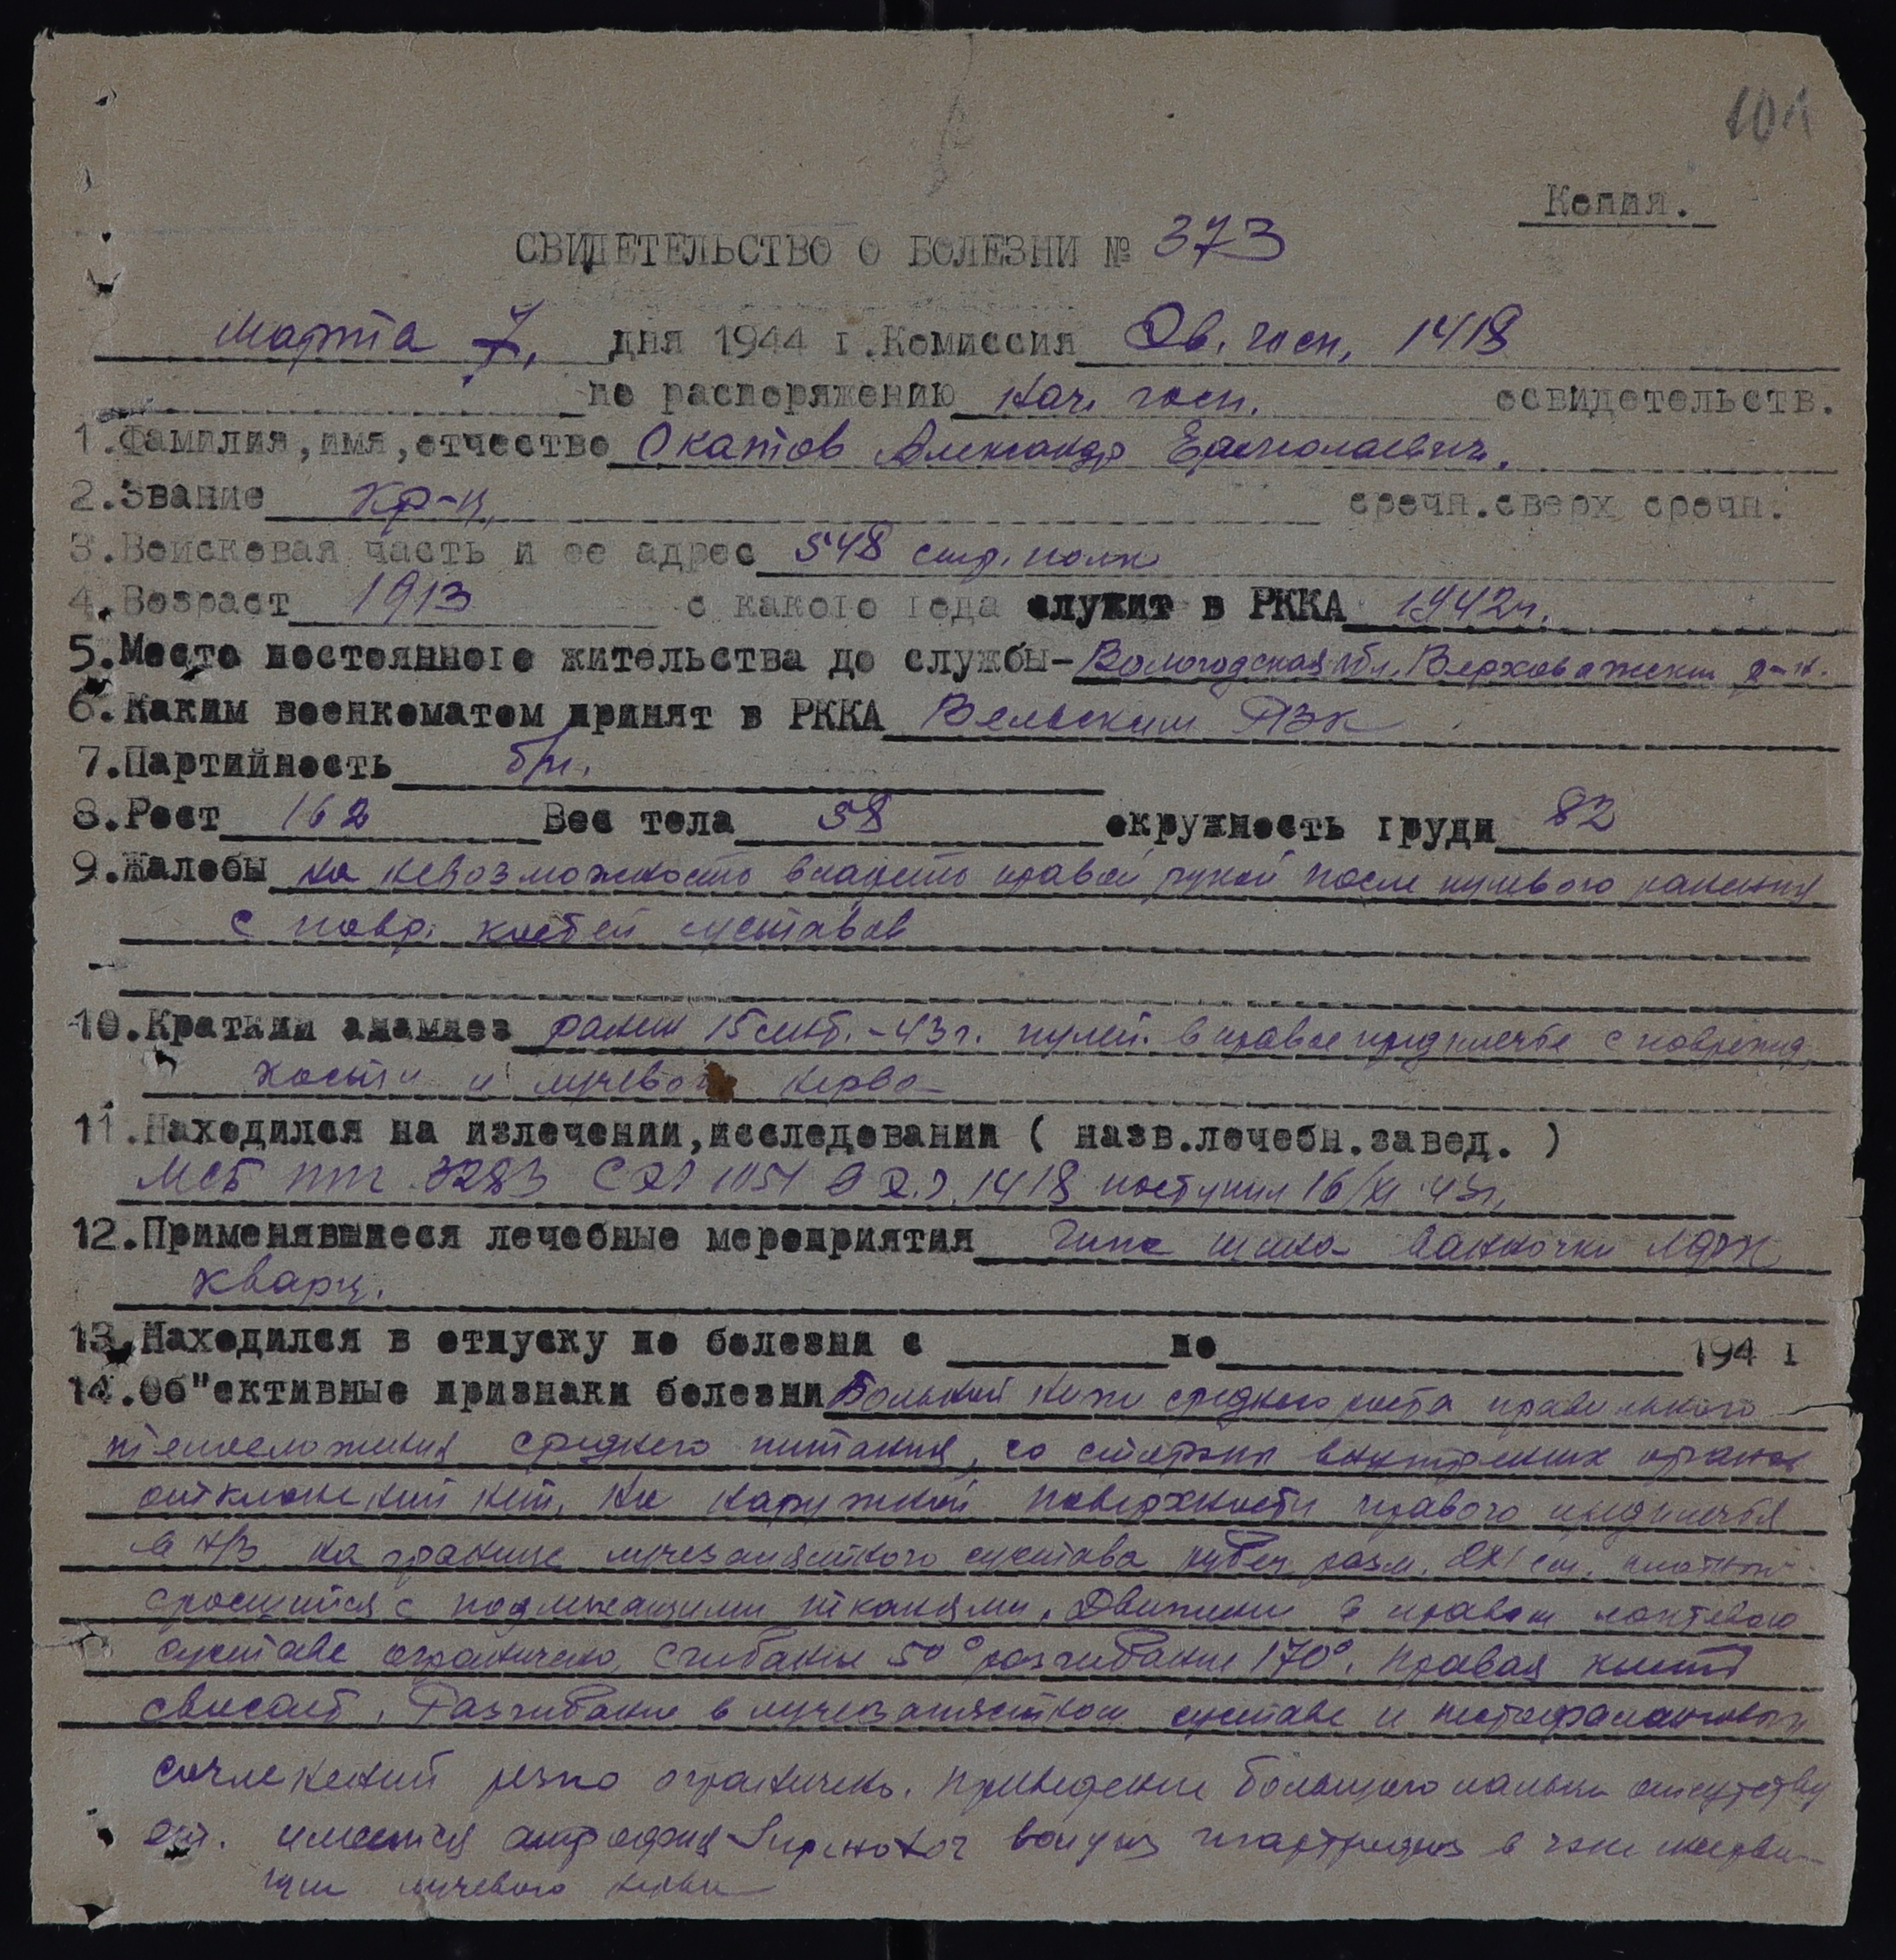 101
Копия.
СВИДЕТЕЛЬСТВО О БОЛЕЗНИ № 373
марта 7, дня 1944 г. Комиссия Эв. госп. 1418
по распоряжению нач. госп. освидетельств.
1. Фамилия, имя, отчество Окатов Александр
2. Звание кр-ц, срочн. сверх срочн.
3. Войсковая часть и ее адрес 548 стр. полк
4. Возраст 1913 с какого года служит в РККА 1942 г.
5. Место постоянного жительства до службы - Вологодская обл, Верховажский р-н.
6. Каким военкоматом принят в РККА Вельским РВК
7. Партийность б/п.
8. Рост 162 Вес тела 58 окружность груди 82
9. Жалобы на невозможность владеть правой рукой после пулевого ранения
с повр. костей суставов
10. Краткий анамнез ранен 15 сент. - 43 г. пулей в правое предплечье с поврежд.
кости и лучевого нерва
11. Находился на излечении, исследовании ( назв. лечебн. завед. )
МСБ ппг 3283 1051 1418 поступил 16/XI 43 г.
12. Применявшиеся лечебные мероприятия Гипс шина ванночки ЛФК
кварц.
13. Находился в отпуску по болезни с по 194 г
14. Об"ективные признаки болезни Больной ниже среднего роста правильного
телосложения среднего питания, со стороны внутренних органов
отклонений нет, На наружной поверхности правого предплечья
в н/з на границе лучезапястного сустава рубец разм. 2х1 см. плотный
сросшийся с подлежащими тканями. Движение в правом локтевом
суставе ограничено, сгибание 50° разгибание 170°. Правая кисть
свисает. Разгибание в лучезапястном суставе и метофаланговых
сочленений резко ограничено. Приведение большого пальца отсутству
ет. имеется атрофия в зоне
лучевого нерва